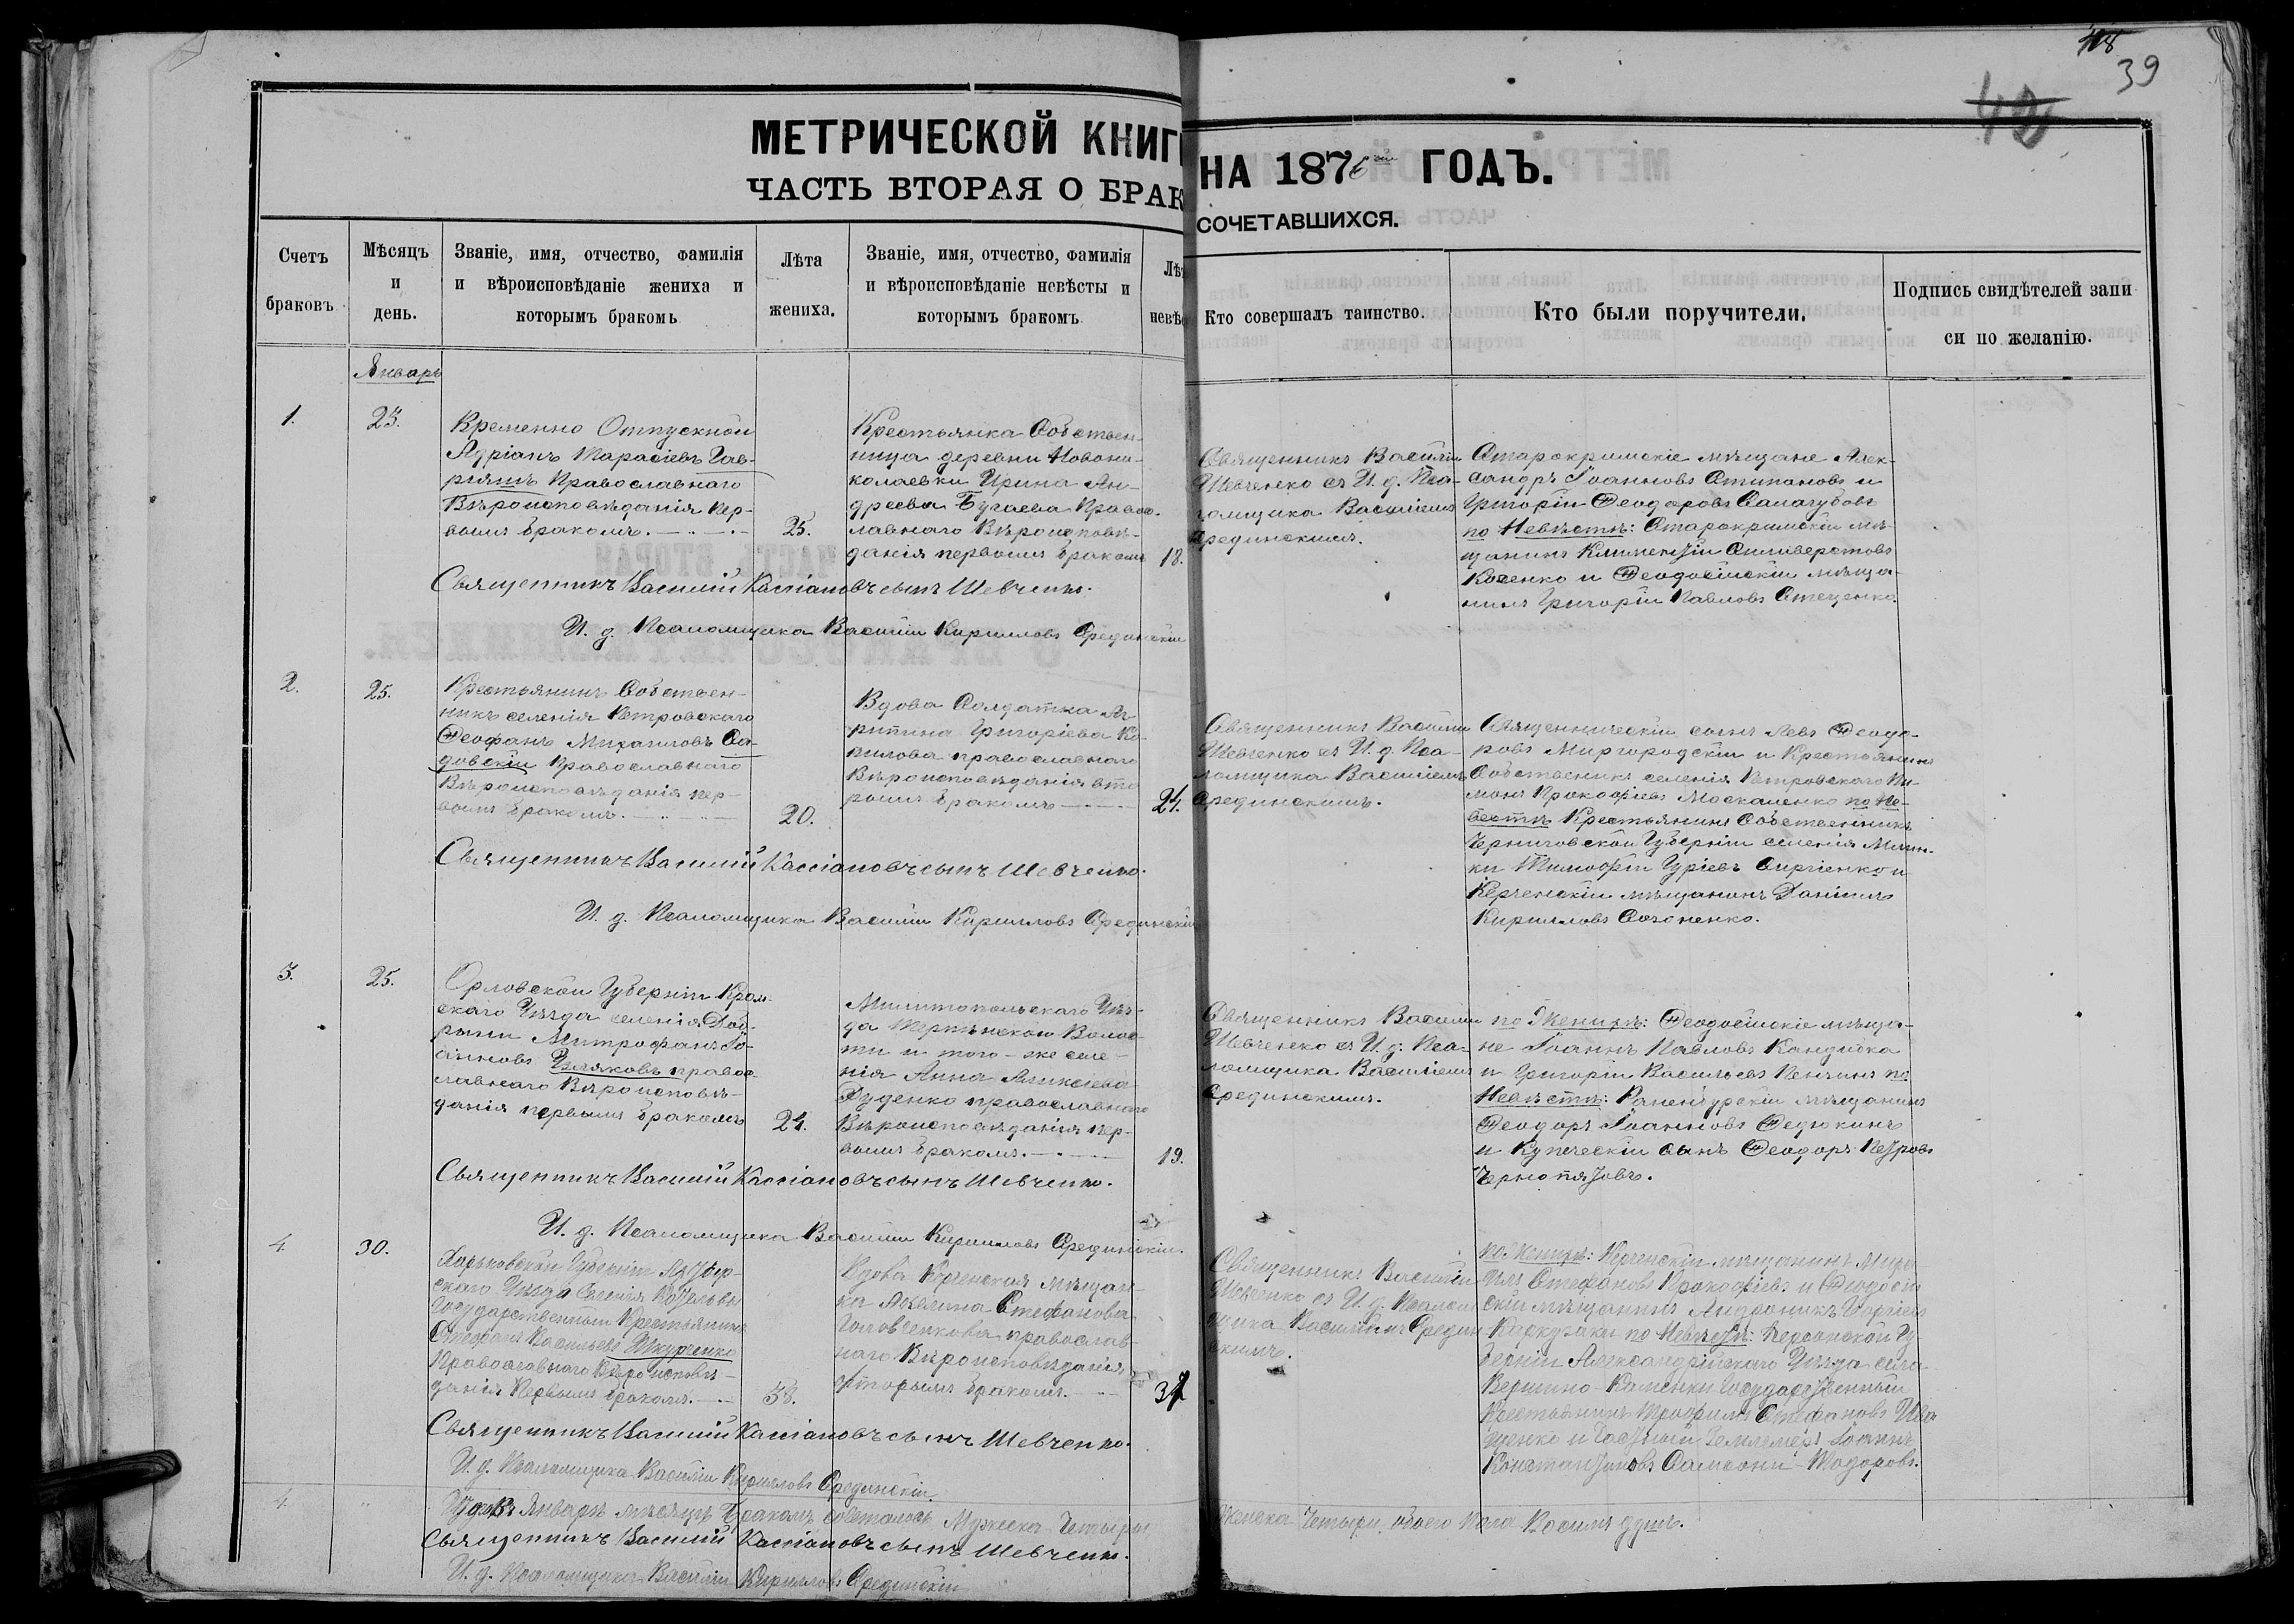 48
39
42
МЕТРИЧЕСКОЙ КНИГ
НА 1876 ГОДЪ.
ЧАСТЬ ВТОРАЯ О БРАК
СОЧЕТАВШИХСЯ.
Счетъ браковъ
Мѣсяцъ и день.
Званіе, имя, отчество, фамилія
и вѣроисповѣданіе жениха и
которымъ бракомъ
Лѣта
жениха.
Званіе, имя, отчество, фамилія
и вѣроисповѣданіе невѣсты и
которымъ бракомъ
Лѣт
невѣс
Кто совершалъ таинство.
Кто были поручители.
Подпись свидѣтелей запи
си по желанію.
Январь
1.
23.
Временно Отпускной
Адріанъ Тарасіевъ Гав-
Православнаго
Вѣроисповѣданія пер-
вымъ бракомъ.
25.
Крестьянка Собствен-
ница деревни Новони-
колаевки Ирина Ан-
дреева Бугаева Правос-
лавнаго Вѣроисповѣ-
данія первымъ бракомъ
18.
Священникъ Василій
Шевченко съ И. д. Пса-
ломщика Василіемъ
Срединскимъ.
Старокримскіе мѣщане Алек-
сандръ Іоанновъ Стипановъ и
Григорій Ѳеодоровъ Салагубовъ
по Невѣстѣ: Старокримскій мѣ-
щанинъ Климентій Силиверстовъ
Косенко и Ѳеодосійскій мѣща-
нинъ Григорій Павловъ Стеценко.
Священникъ Василій Кассіановъ сынъ Шевченко.
И. д. Псаломщика Василій Кирилловъ Срединскій
2.
25.
Крестьянинъ Собствен-
никъ селенія Петровскаго
Ѳеофанъ Михаиловъ Са-
довскій Православнаго
Вѣроисповѣданія пер-
вымъ бракомъ.
20.
Вдова Солдатка Аг-
рипина Григоріева Ко-
пилова православнаго
Вѣроисповѣданія вто-
рымъ бракомъ
24.
Священникъ Василій
Шевченко съ И. д. Пса-
ломщика Василіемъ
Срединскимъ.
Священническій сынъ Левъ Ѳеодо-
ровъ Миргородскій и Крестьянинъ
Собственникъ селенія Петровскаго Пи-
монъ Прокофіевъ Москаленко по Не-
вѣстѣ Крестьянинъ Собственникъ
Черниговской Губерніи селенія
ки Тимофій Гуріевъ Сиргіенко и
Керченскій мѣщанинъ Даніилъ
Кирилловъ
Священникъ Василій Кассіановъ сынъ Шевченко.
И. д. Псаломщика Василій Кирилловъ Срединскій
3.
25.
Орловской Губерніи Кром-
скаго Уѣзда селенія Доб-
рыни Митрофанъ Іо-
анновъ правос-
лавнаго Вѣроисповѣ-
данія первымъ бракомъ
24.
Милитопольскаго Уѣз-
да Терпѣнской Волос-
ти и того-же селе-
нія Анна Аликсіева
Дуденко православнаго
Вѣроисповѣданія пер-
вымъ бракомъ.
19.
Священникъ Василій
Шевченко съ И. д. Пса-
ломщика Василіемъ
Срединскимъ.
по Женихѣ: Ѳеодосійскіе мѣща-
не Іоаннъ Павловъ Кандиба
и Григорій Васильевъ Пенчинъ по
Невѣстѣ: Раненбурскій мѣщанинъ
Ѳеодоръ Іоанновъ Ѳедюкинъ
и Купческій сынъ Ѳеодоръ Петровъ
Чернопятовъ.
Священникъ Василій Кассіановъ сынъ Шевченко.
И. д. Псаломщика Василій Кирилловъ Срединскій.
4.
30.
Харьковской Губерніи Ахтыр-
скаго Уѣзда Селенія Котельвы
Государственный Крестьянинъ
Стефанъ Васильевъ Шкуренко
Православнаго Вѣроисповѣ-
данія Первымъ бракомъ.
38.
Вдова Керченская мѣщан-
ка Акилина Стефанова
Головченкова православ
наго Вѣроисповѣданія
вторымъ бракомъ.
37
Священникъ Василій
Шевченко съ И. д. Псалом
щика Василіемъ Средин
скимъ.
по Женихѣ: Керченскій мѣщанинъ Миха
илъ Стефановъ Прокофіевъ и Ѳеодосій
скій мѣщанинъ Андроникъ
по Невѣстѣ: Херсонской Гу
берніи Александрійскаго Уѣзда села
Вершино-Каменки Государственный
Крестьянинъ Трофимъ Стефановъ Ива
щенко и Частный Землемеръ Іоаннъ
Константиновъ Самсони-Тодоровъ.
Священникъ Василій Кассіановъ сынъ Шевченко.
И. д. Псаломщика Василій Кирилловъ Срединскій.
4.
Январѣ мѣсяцѣ Бракомъ сочеталось Мужеска Четыри,
Женска Четыри, обоего Пола Восимъ душъ.
Священникъ Василій Кассіановъ сынъ Шевченко.
И. д. Псаломщика Василій Кирилловъ Срединскій